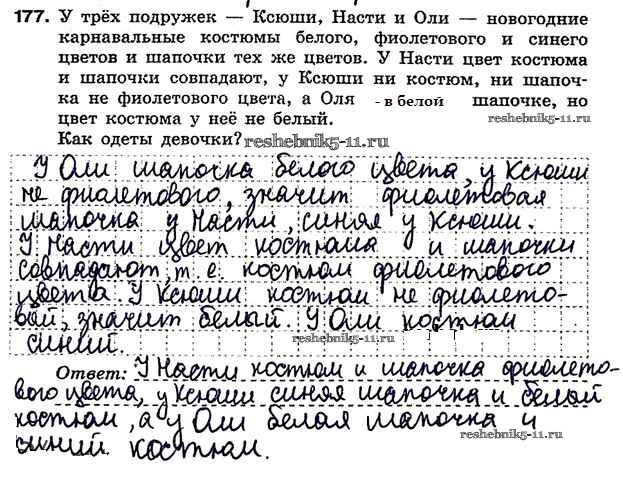 177. У трёх подружек — Ксюши, Насти и Оли — новогодние
карнавальные костюмы белого, фиолетового и синего
цветов и шапочки тех же цветов. У Насти цвет костюма
и шапочки совпадают, у Ксюши ни костюм, ни шапоч-
ка не фиолетового цвета, а Оля - в белой шапочке, но
цвет костюма у неё не белый. reshebnik5-11.ru
Как одеты девочки? reshebnik5-11.ru
У Оли шапочка белого цвета, у Ксюши
не фиолетового, значит фиолетовая
шапочка у Насти, синяя у Ксюши.
У Насти цвет костюма и шапочки
совпадают, т. е. костюм фиолетового
цвета. У Ксюши костюм не фиолето-
вый, значит белый. У Оли костюм
синий. reshebnik5-11.ru
Ответ: У Насти костюм и шапочка фиолето-
вого цвета, у Ксюши синяя шапочка и белый
костюм, а у Оли белая шапочка и
синий костюм. reshebnik5-11.ru